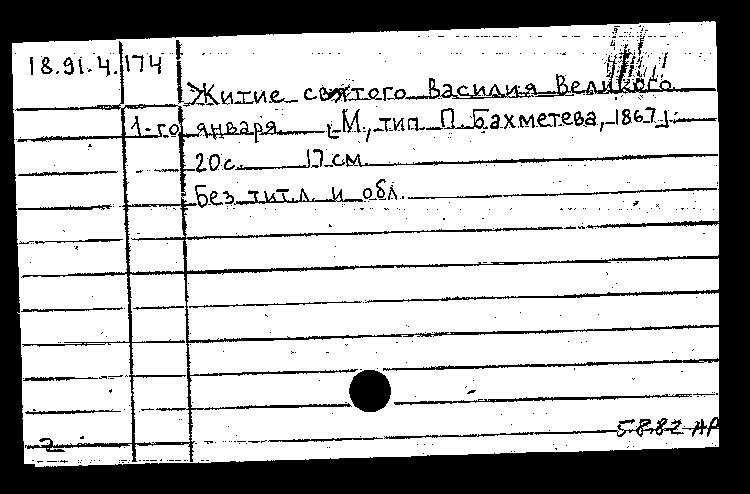 18.91.4.174
Житие святого Василия Великого
1-го января [М., тип. П. Бахметева, 1867].
20 с. 17 см.
Без титл. и обл.
2
5.8.82 АР